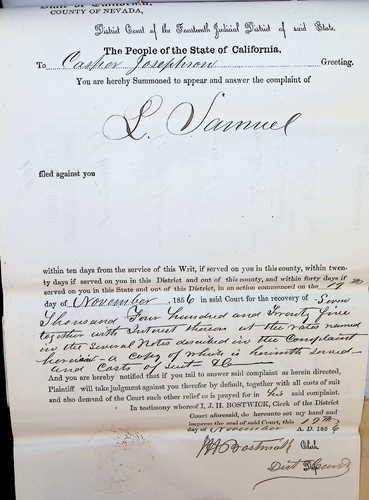 COUNTY OF NEVADA,
District Court of the Fourteenth Judicial District of said State.
The People of the State of California.
To Casper Josephson Greeting.
You are hereby Summoned to appear and answer the complaint of
L. Samuel
filed against you
within ten days from the service of this Writ, if served on you in this county, within twen-
ty days if served on you in this District and out of this county, and within forty days if
served on you in this State and out of this District, in an action commenced on the 19th
day of November, 1856 in said Court for the recovery of Seven
Thousand Four hundred and Twenty five
together with Interest thereon at the rates named
in the Several Notes described in the Complaint
herein - a copy of which is herewith served -
and Costs of Suit &c
And you are hereby notified that if you fail to answer said complaint as herein directed,
Plaintiff will take judgment against you therefor by default, together with all costs of suit
and also demand of the Court such other relief as is prayed for in his said complaint.
In testimony whereof I, J. H. BOSTWICK, Clerk of the District
Court aforesaid, do hereunto set my hand and
impress the seal of said Court, this 19th
day of November A. D. 1856
J H Bostwick Clerk.
Dist Court